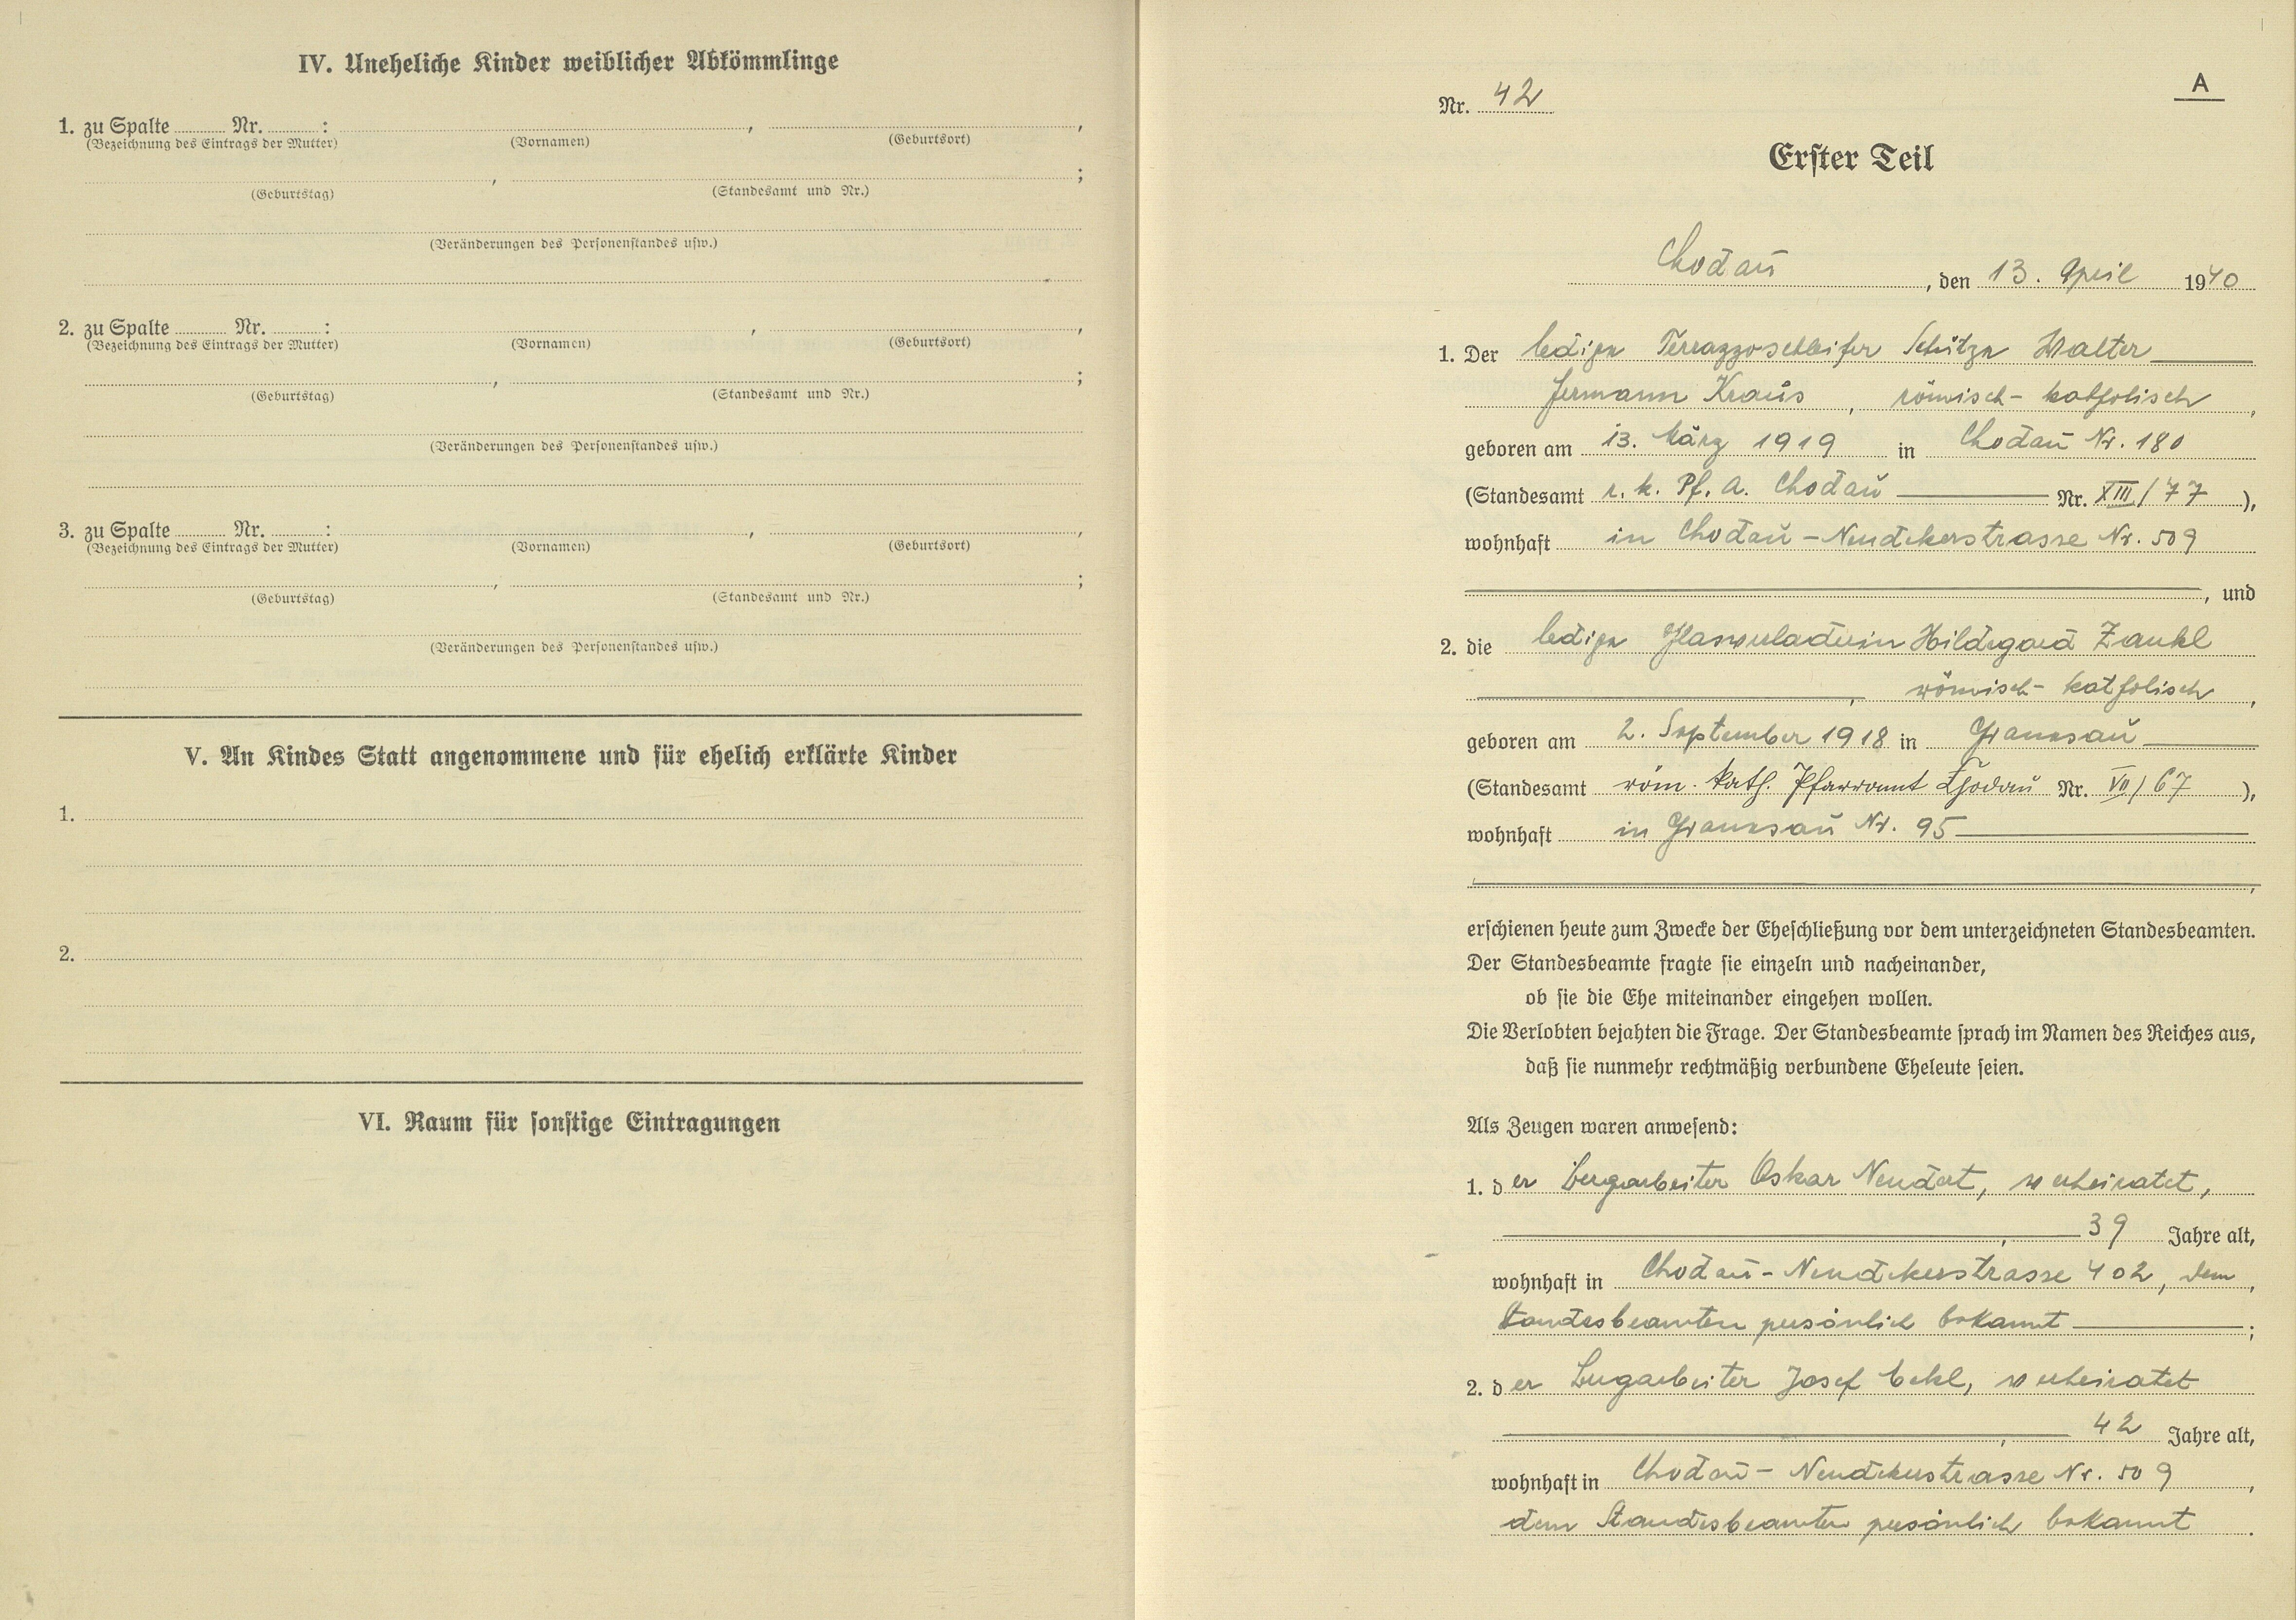 IV. Uneheliche Kinder weiblicher Abkömmlinge
1. zu Spalte ........ Nr. ........ : ........ , ........ ,
(Bezeichnung des Eintrags der Mutter) (Vornamen) (Geburtsort)
........ , ........ ;
(Geburtstag) (Standesamt und Nr.)
(Veränderungen des Personenstandes usw.)
2. zu Spalte ........ Nr. ........ : ........ , ........ ,
(Bezeichnung des Eintrags der Mutter) (Vornamen) (Geburtsort)
........ , ........ ;
(Geburtstag) (Standesamt und Nr.)
(Veränderungen des Personenstandes usw.)
3. zu Spalte ........ Nr. ........ : ........ , ........ ,
(Bezeichnung des Eintrags der Mutter) (Vornamen) (Geburtsort)
........ , ........ ;
(Geburtstag) (Standesamt und Nr.)
(Veränderungen des Personenstandes usw.)
V. An Kindes Statt angenommene und für ehelich erklärte Kinder
1.
2.
VI. Raum für sonstige Eintragungen
A
Nr. 42
Erster Teil
Chodau, den 13. April 1940
1. Der ledige Terrazzoschleifer Schütze Walter
Hermann Kraus, römisch-katholisch,
geboren am 13. März 1919 in Chodau Nr. 180
(Standesamt r. k. Pf. A. Chodau Nr. XIII/77),
wohnhaft in Chodau-Neudekerstrasse Nr. 509
, und
2. die ledige Hildegard Zankl
, römisch-katholisch,
geboren am 2. September 1918 in Granesau
(Standesamt röm. kath. Pfarramt Chodau Nr. VII/67),
wohnhaft in Granesau Nr. 95
,
erschienen heute zum Zwecke der Eheschließung vor dem unterzeichneten Standesbeamten.
Der Standesbeamte fragte sie einzeln und nacheinander,
ob sie die Ehe miteinander eingehen wollen.
Die Verlobten bejahten die Frage. Der Standesbeamte sprach im Namen des Reiches aus,
daß sie nunmehr rechtmäßig verbundene Eheleute seien.
Als Zeugen waren anwesend:
1. der Bergarbeiter Oskar verheiratet,
, 39 Jahre alt,
wohnhaft in Chodau-Neudekerstrasse 402, dem,
Standesbeamten persönlich bekannt;
2. der Bergarbeiter Josef verheiratet
, 42 Jahre alt,
wohnhaft in Chodau-Neudekerstrasse Nr. 509,
dem Standesbeamten persönlich bekannt.